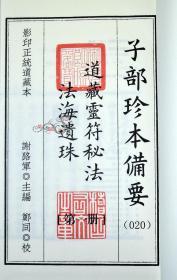 子部珍本備要
(020)
道藏靈符秘法
法海遺珠
[第一册]
影印正統道藏本
謝路軍◎主編 鄭同◎校